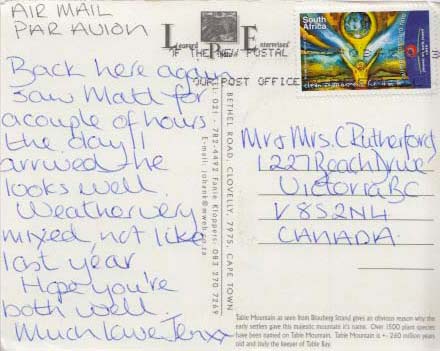 AIR MAIL
PAR AVION
Leopard Press Enterprises
IF THE NEW POSTAL
YOUR POST OFFICE
South Africa
Back here again
Saw Matt for
a couple of hours
the day I
arrived the
looks well.
Weather very
mixed, not like
last year
Hope you're
both well.
Much love Jenxx
BETHEL ROAD, CLOVELLY, 7975, CAPE TOWN
021 - 782-4492 Fanie Kloppers: 083 270 7269
E-mail: jobank@mweb.co.za
Mr & Mrs. C Rutherford
1227 Beach Drive
Victoria BC
V8S2N4
CANADA
Table Mountain as seen from Bloubrg Strand gives an obvious reason why the
early settlers gave this majestic mountain it's name. Over 1500 plant species
have been named on Table Mountain. Table Mountain is +- 260 million years
old and truly the keeper of Table Bay.